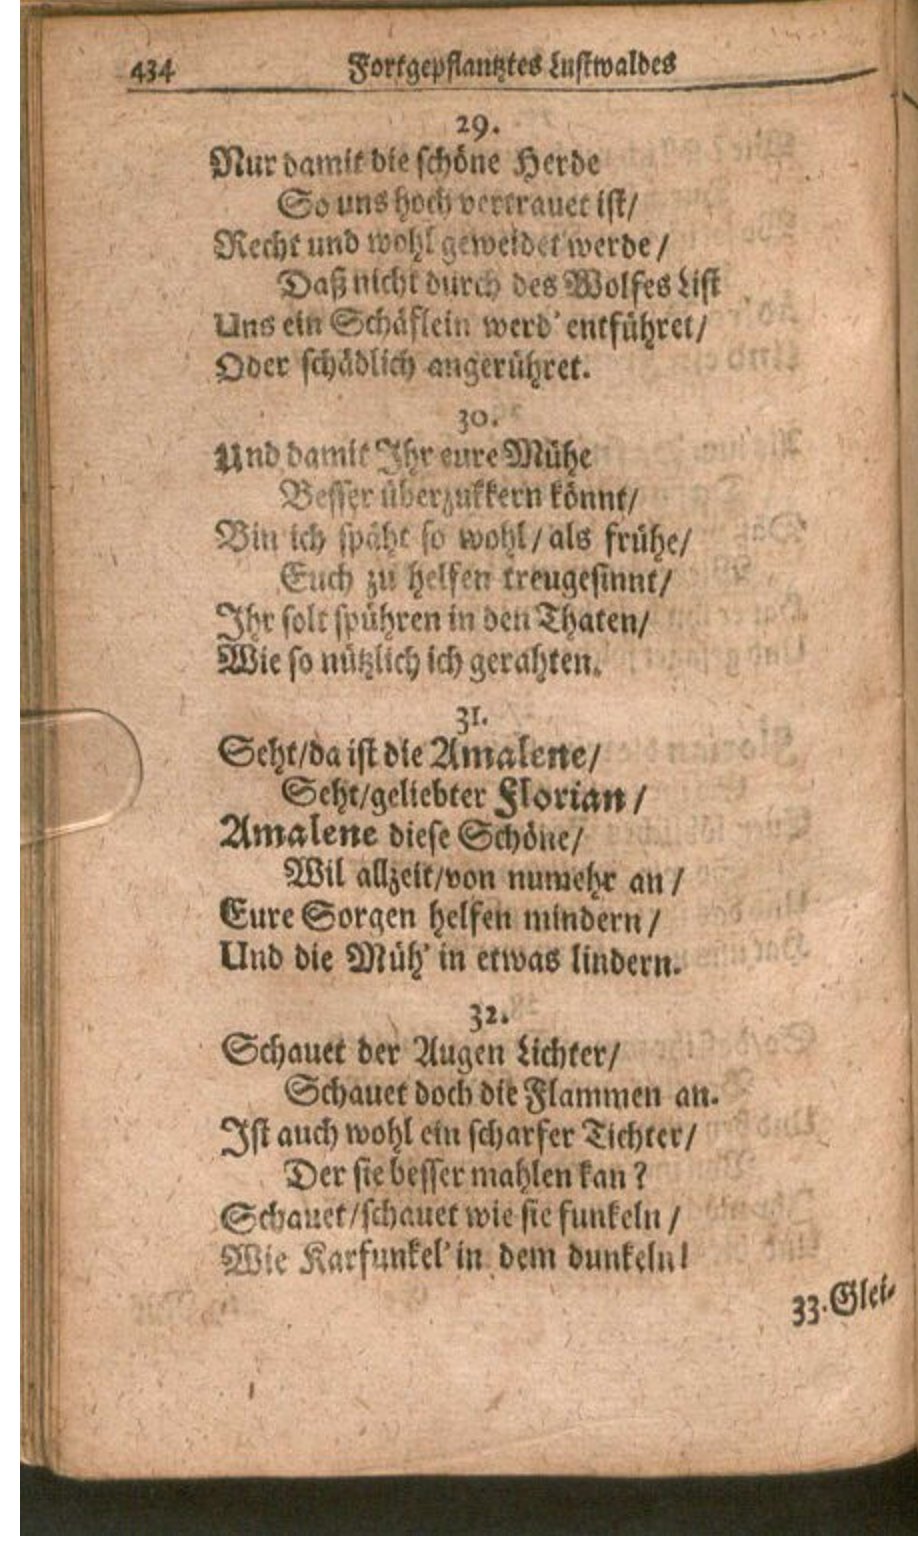 434 Fortgepflantztes Lustwaldes
29.
Nur damit die schöne Herde
So uns hoch vertrauet ist/
Recht und wohl geweidet werde/
Daß nicht durch des Wolfes List
Uns ein Schäflein werd' entführet/
Oder schädlich angerühret.
30.
Und damit Ihr eure Mühe
Besser überzukkern könnt/
Bin ich späht so wohl/als frühe/
Euch zu helfen treugesinnt/
Ihr solt spühren in den Thaten/
Wie so nützlich ich gerahten.
31.
Seht/da ist die Amalene/
Seht/geliebter Florian/
Amalene diese Schöne/
Wil allzeit/von numehr an/
Eure Sorgen helfen mindern/
Und die Müh' in etwas lindern.
32.
Schauet der Augen Lichter/
Schauet doch die Flammen an.
Ist auch wohl ein scharfer Tichter/
Der sie besser mahlen kan?
Schauet/schauet wie sie funkeln/
Wie Karfunkel' in dem dunkeln!
33.Glei-